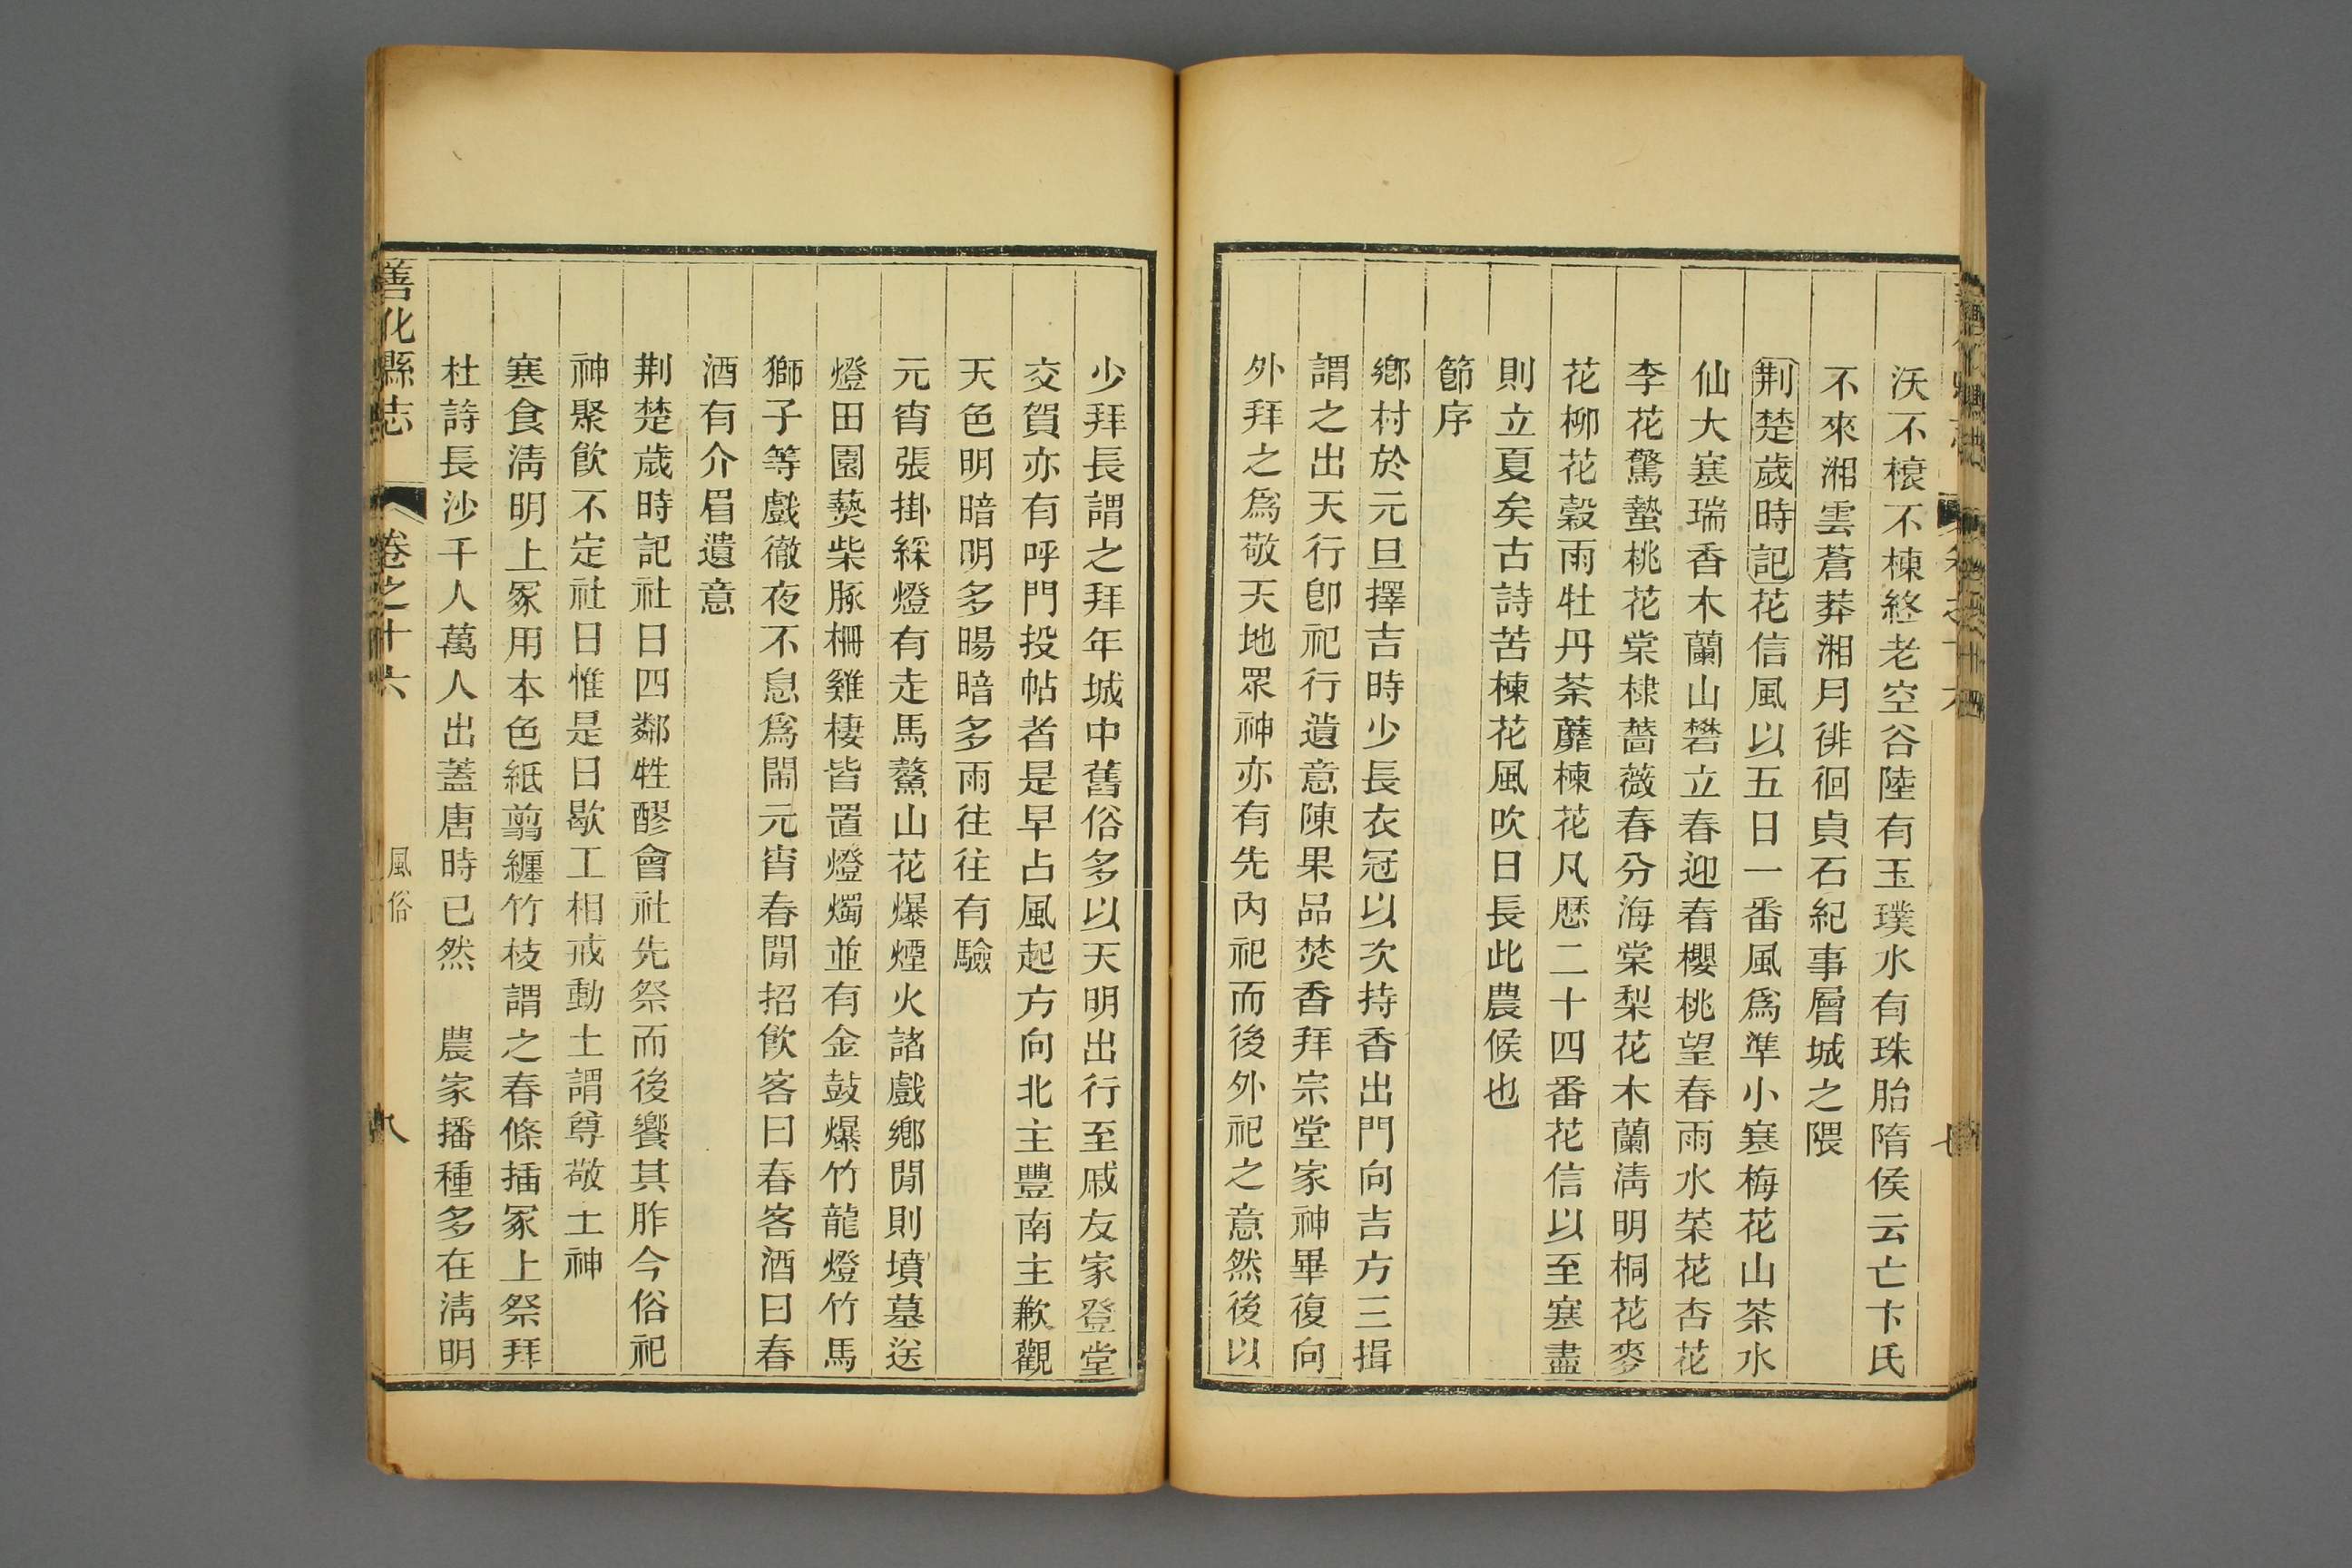 沃不榱不棟終老空谷陸有玉璞水有珠胎隋侯云亡卞氏
不來湘雲蒼莽湘月徘徊貞石紀事層城之隈
荆楚歲時記花信風以五日一番風爲準小寒梅花山茶水
仙大寒瑞香木蘭山礬立春迎春櫻桃望春雨水菜花杏花
李花驚蟄桃花棠棣薔薇春分海棠梨花木蘭淸明桐花麥
花柳花穀雨牡丹荼蘼楝花凡歷二十四番花信以至寒盡
則立夏矣古詩苦楝花風吹日長此農候也
節序
鄉村於元旦擇吉時少長衣冠以次持香出門向吉方三揖
謂之出天行卽祀行遺意陳果品焚香拜宗堂家神畢復向
外拜之爲敬天地眾神亦有先內祀而後外祀之意然後以
少拜長謂之拜年城中舊俗多以天明出行至戚友家登堂
交賀亦有呼門投帖者是早占風起方向北主豐南主歉觀
天色明暗明多暘暗多雨往往有驗
元宵張掛綵燈有走馬鰲山花爆煙火諸戲鄉閒則墳墓送
燈田園爇柴豚柵雞棲皆置燈燭並有金鼓爆竹龍燈竹馬
獅子等戲徹夜不息爲鬧元宵春閒招飮客曰春客酒曰春
酒有介眉遺意
荆楚歲時記社日四鄰牲醪會社先祭而後饗其胙今俗祀
神聚飮不定社日惟是日歇工相戒動土謂尊敬土神
寒食淸明上冢用本色紙翦纏竹枝謂之春條插冢上祭拜
杜詩長沙千人萬人出蓋唐時已然　農家播種多在淸明
善化縣志
卷之十六
風俗
八